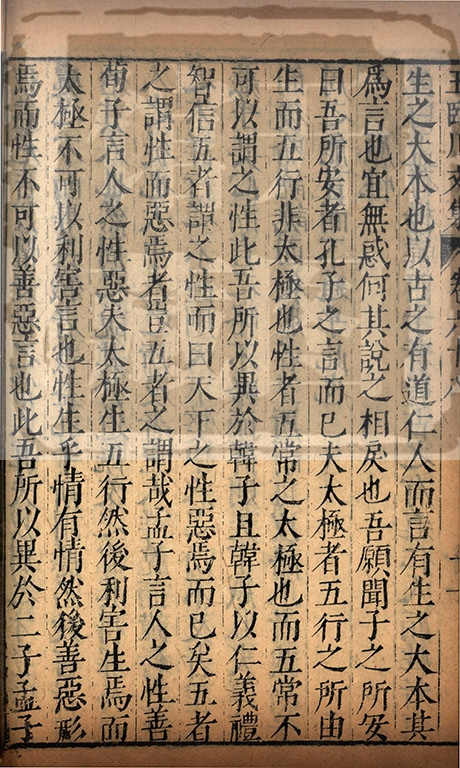 王臨川文集 卷六十八
生之大本也以古之有道仁人而言有生之大本其
爲言也宜無惑何其說之相戾也吾願聞子之所安
曰吾所安者孔子之言而已夫太極者五行之所由
生而五行非太極也性者五常之太極也而五常不
可以謂之性此吾所以異於韓子且韓子以仁義禮
智信五者謂之性而曰天下之性惡焉而已矣五者
之謂性而惡焉者豈五者之謂哉孟子言人之性善
荀子言人之性惡夫太極生五行然後利害生焉而
太極不可以利害言也性生乎情有情然後善惡形
焉而性不可以善惡言也此吾所以異於二子孟子